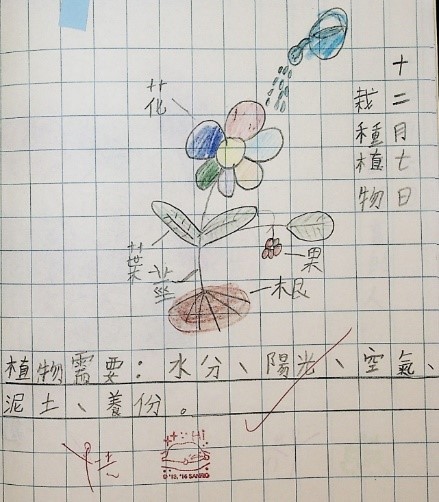 十二月七日
栽種植物
花
葉
莖
果
根
植物需要：水分、陽光、空氣、
泥土、養份。